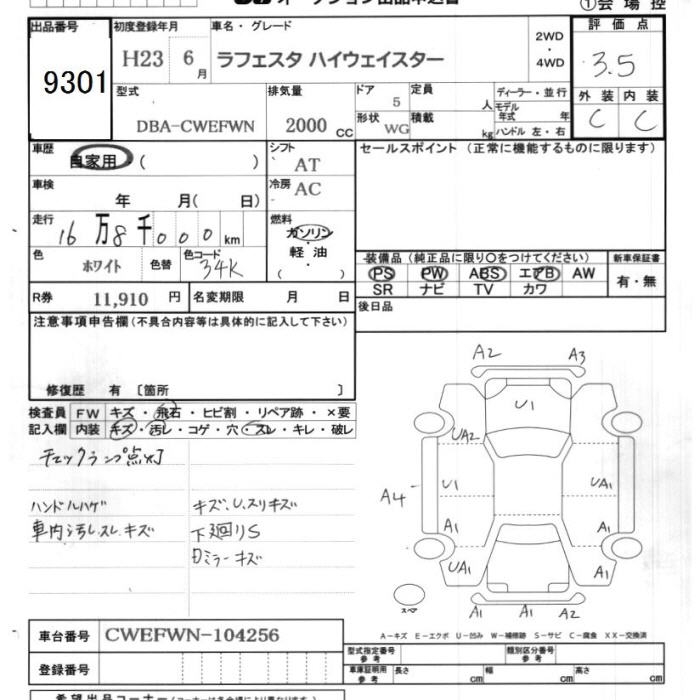 オークション出品申込書
①会場控
出品番号 初度登録年月 車名・グレード 2WD・4WD 評価点
9301 H23 6月 ラフェスタ ハイウェイスター 3.5
外装 内装
C C
型式 排気量 ドア 定員 ディーラー・並行
DBA-CWEFWN 2000 CC 5 人 モデル年式 年
形状 積載
WG kg ハンドル 左・右
車歴 シフト セールスポイント (正常に機能するものに限ります)
自家用・( ) AT
車検 冷房 AC
年 月( 日)
走行 燃料
16万8千000km ガソリン・軽油・( )
色 ホワイト 色替 色コード 34K
装備品 (純正品に限り○をつけてください) 新車保証書
PS PW ABS エアB AW 有・無
SR ナビ TV カワ
R券 11,910 円 名変期限 月 日 後日品
注意事項申告欄 (不具合内容等は具体的に記入して下さい)
修復歴 有 〔箇所 〕
検査員 FW キズ・飛石・ヒビ割・リペア跡・×要
記入欄 内装 キズ・汚レ・コゲ・穴・スレ・キレ・破レ
チェックランプ点灯
ハンドルハゲ キズ、U、スリキズ
車内汚レスレキズ 下廻りS
Dミラーキズ
A2 A3
U1
UA2
A4 U1 UA1
A1 A1
UA1 A1
スペア A1 A1 A2
A-キズ E-エクボ U-凹み W-補修跡 S-サビ C-腐食 XX-交換済
車台番号 CWEFWN-104256
登録番号
型式指定番号 参考 類別区分番号 参考
車庫証明用 参考 長さ cm 幅 cm 高さ cm
希望出品コーナー